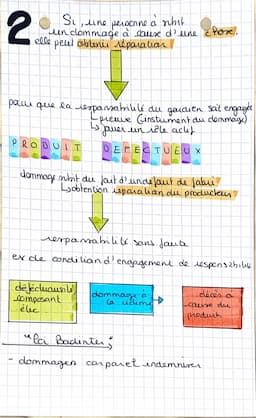 2
Si, une personne a subit
un dommage à cause d'une chose,
elle peut obtenir réparation
pour que la responsabilité du gardien soit engagée
↳ preuve (instrument du dommage)
↳ jouer un rôle actif
PRODUIT DEFECTUEUX
dommage subit du fait d'un defaut de fabri
↳ obtention réparation du producteur
responsabilité sans faute
ex de condition d'engagement de responsabilité
défectuosité
composant
élec
dommage à
la victime
décès à
cause du
produit
"loi Badinter"
- dommages corporel indemniser